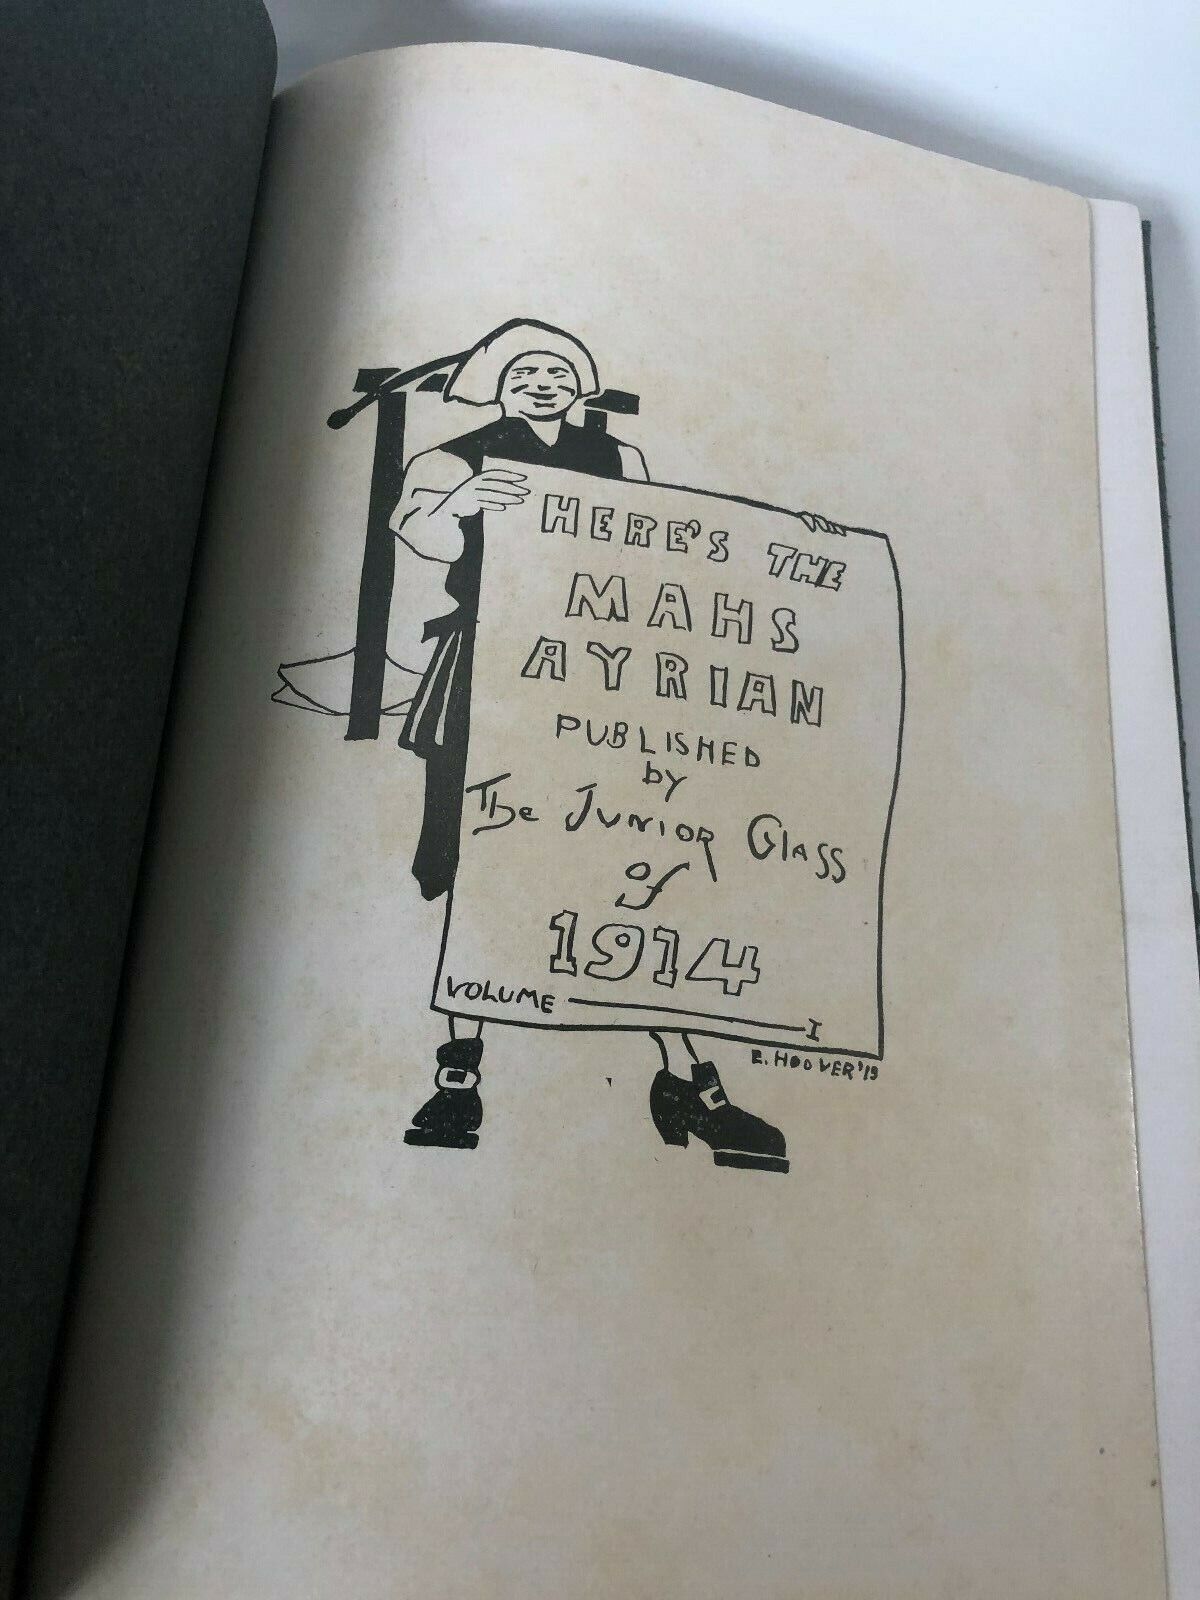 HERE'S THE
MAHS
AYRIAN
PUBLISHED
by
The JUNIOR Class
of
1914
VOLUME I
E. HOOVER '15